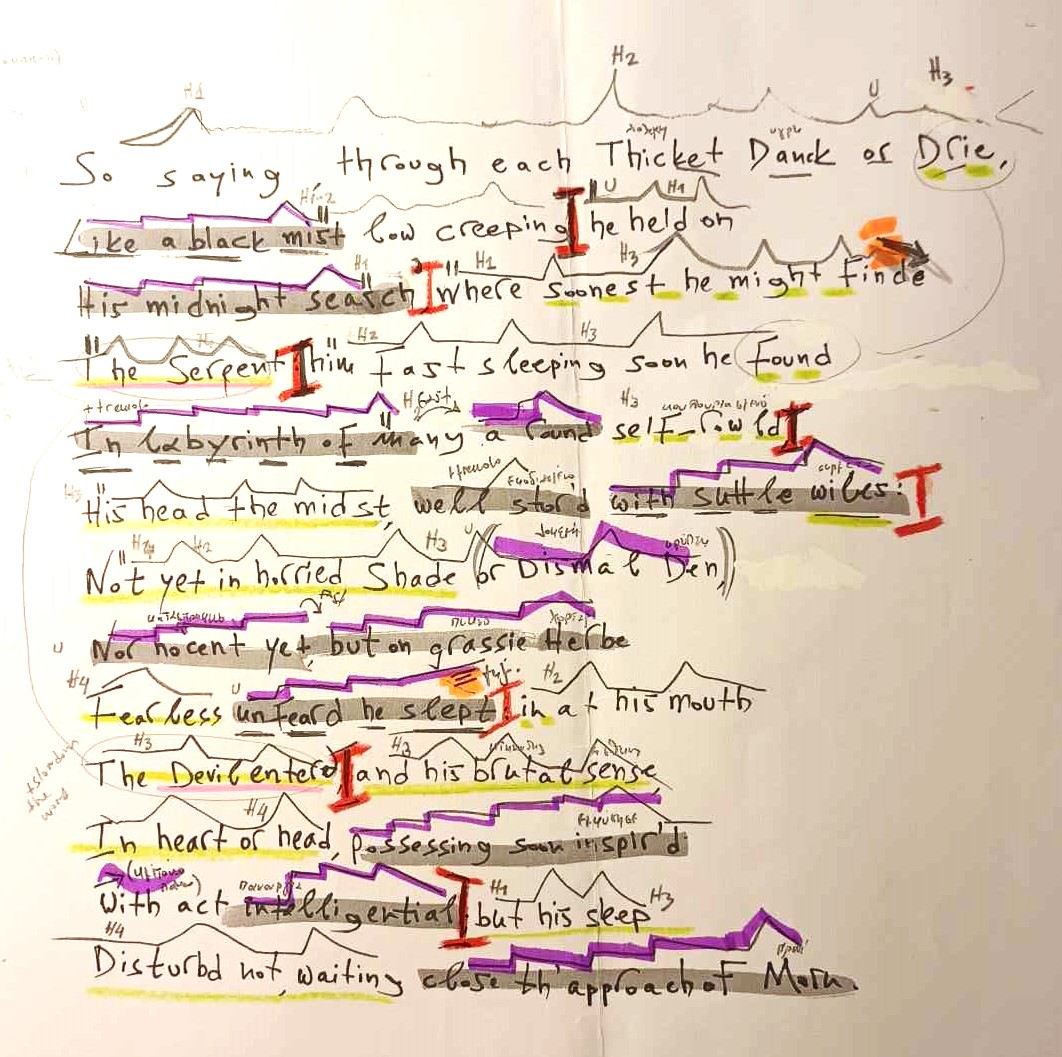 H1 H2 U H3
So saying through each Thicket Danck or Drie,
H1-2 U H1
Like a black mist low creeping he held on
H1 H1 H3
His midnight search where soonest he might finde
H2 H3
The Serpent him fast sleeping soon he found
+tremolo H3
In labyrinth of many a round self-rowld
H3 +tremolo
His head the midst, well stor'd with suttle wiles:
H2 H3 U
Not yet in horried Shade (or Dismal Den)
U Nor nocent yet, but on grassie Herbe
H4 U H2
Fearless unfeard he slept in at his mouth
H3 H3
The Devil enterd and his brutal sense
+slowdown the word
H4
In heart or head, possessing soon inspir'd
H1 H3
With act intelligential but his sleep
H4
Disturbd not, waiting close th'approach of Morn.